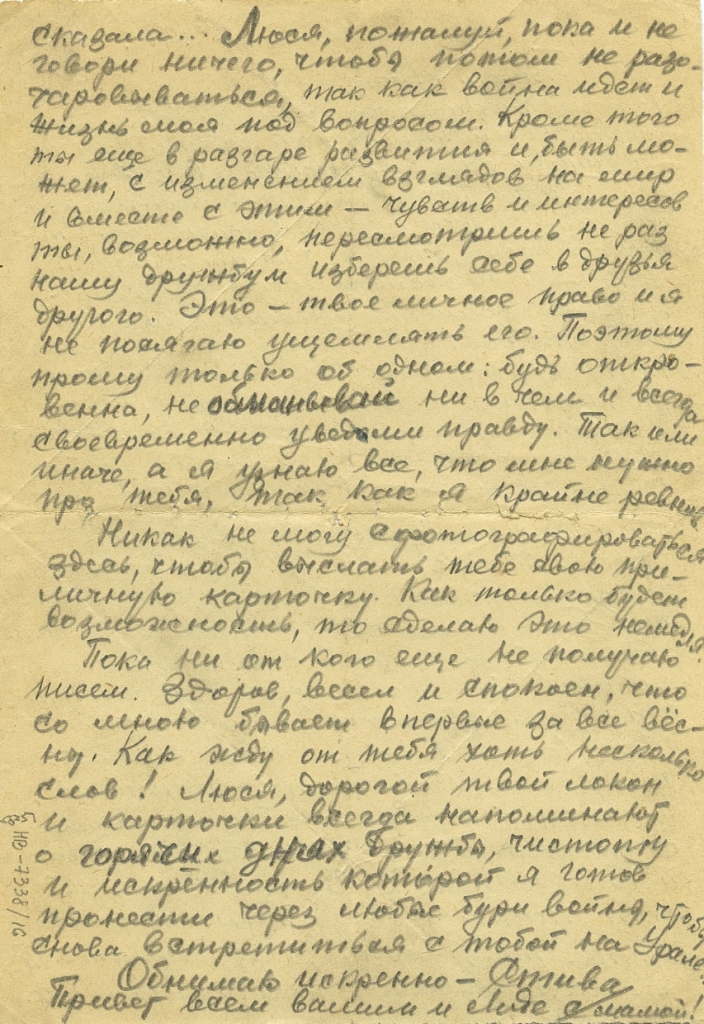 сказала... Люся, пожалуй, пока и не
говори ничего, чтобы потом не разо-
чаровываться, так как война идет и
жизнь моя под вопросом. Кроме того
ты еще в разгаре развития и, быть мо-
жет, с изменением взглядов на мир
и вместе с этим — чувств и интересов
ты, возможно, пересмотришь не раз
нашу дружбу и изберешь себе в друзья
другого. Это — твое личное право и я
не посягаю ущемлять его. Поэтому
прошу только об одном: будь откро-
венна, не обманывай ни в чем и всегда
своевременно уведоми правду. Так или
иначе, а я узнаю все, что мне нужно
про тебя, так как я крайне ревнив
Никак не могу сфотографироваться
здесь, чтобы выслать тебе свою при-
личную карточку. Как только будет
возможность, то сделаю это
Пока ни от кого еще не получаю
писем. Здоров, весел и спокоен, что
со мною бывает впервые за все вёс-
ны. Как жду от тебя хоть несколько
слов! Люся, дорогой твой локон
и карточки всегда напоминают
о горячих днях дружбы, чистоту
и искренность которой я готов
пронести через любые бури войны, чтобы
снова встретиться с тобой на Урале.
Обнимаю искренно — Стива
Привет всем вашим и Лиде с мамой!
НВ-7338/16